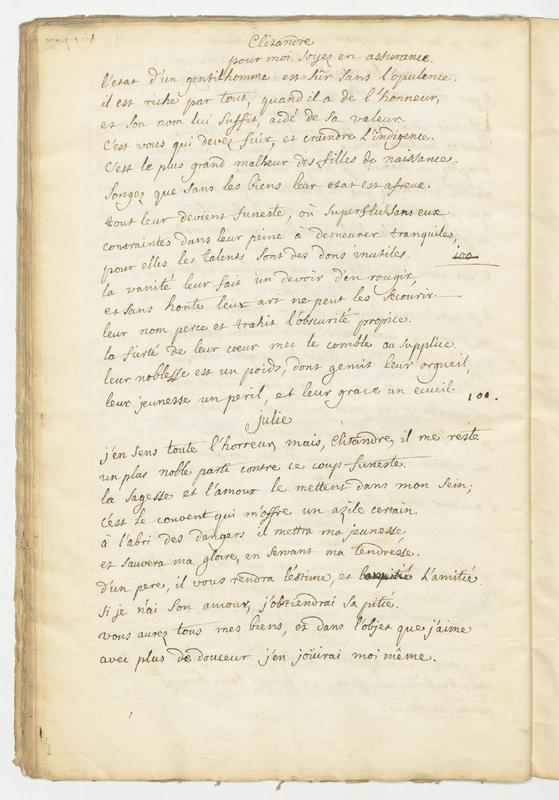 Clitandre
pour moi soyez en assurance.
l'etat d'un gentilhomme est sûr sans l'opulence.
il est riche par tout, quand il a de l'honneur,
et son nom lui suffit, aidé de sa valeur
c'est vous qui devez fuir, et craindre l'indigence.
C'est le plus grand malheur des filles de naissance.
songez que sans les biens leur etat est afreux.
tout leur devient funeste, où superflu sans eux
contraintes dans leur peine à demeurer tranquiles,
pour elles les talents sont des dons inutiles. 100
la vanité leur fait un devoir d'en rougir,
et sans honte leur art ne peut les secourir.
leur nom perce et trahit l'obscurité propice.
la fierté de leur cœur met le comble au supplice.
leur noblesse est un poids, dont gemit leur orgueil,
leur jeunesse un peril, et leur grace un écueil. 100.
julie
j'en sens toute l'horreur, mais, Clitandre, il me reste
un plus noble parti contre ce coup funeste.
la sagesse et l'amour le mettent dans mon sein;
c'est le couvent qui m'offre un azile certain.
à l'abri des dangers il mettra ma jeunesse
et sauvera ma gloire, en servant ma tendresse.
d'un pere, il vous rendra l'estime, et l'amitié.
si je n'ai son amour, j'obtiendrai sa pitié.
vous aurez tous mes biens, et dans l'objet que j'aime
avec plus de douceur j'en joüirai moi même.